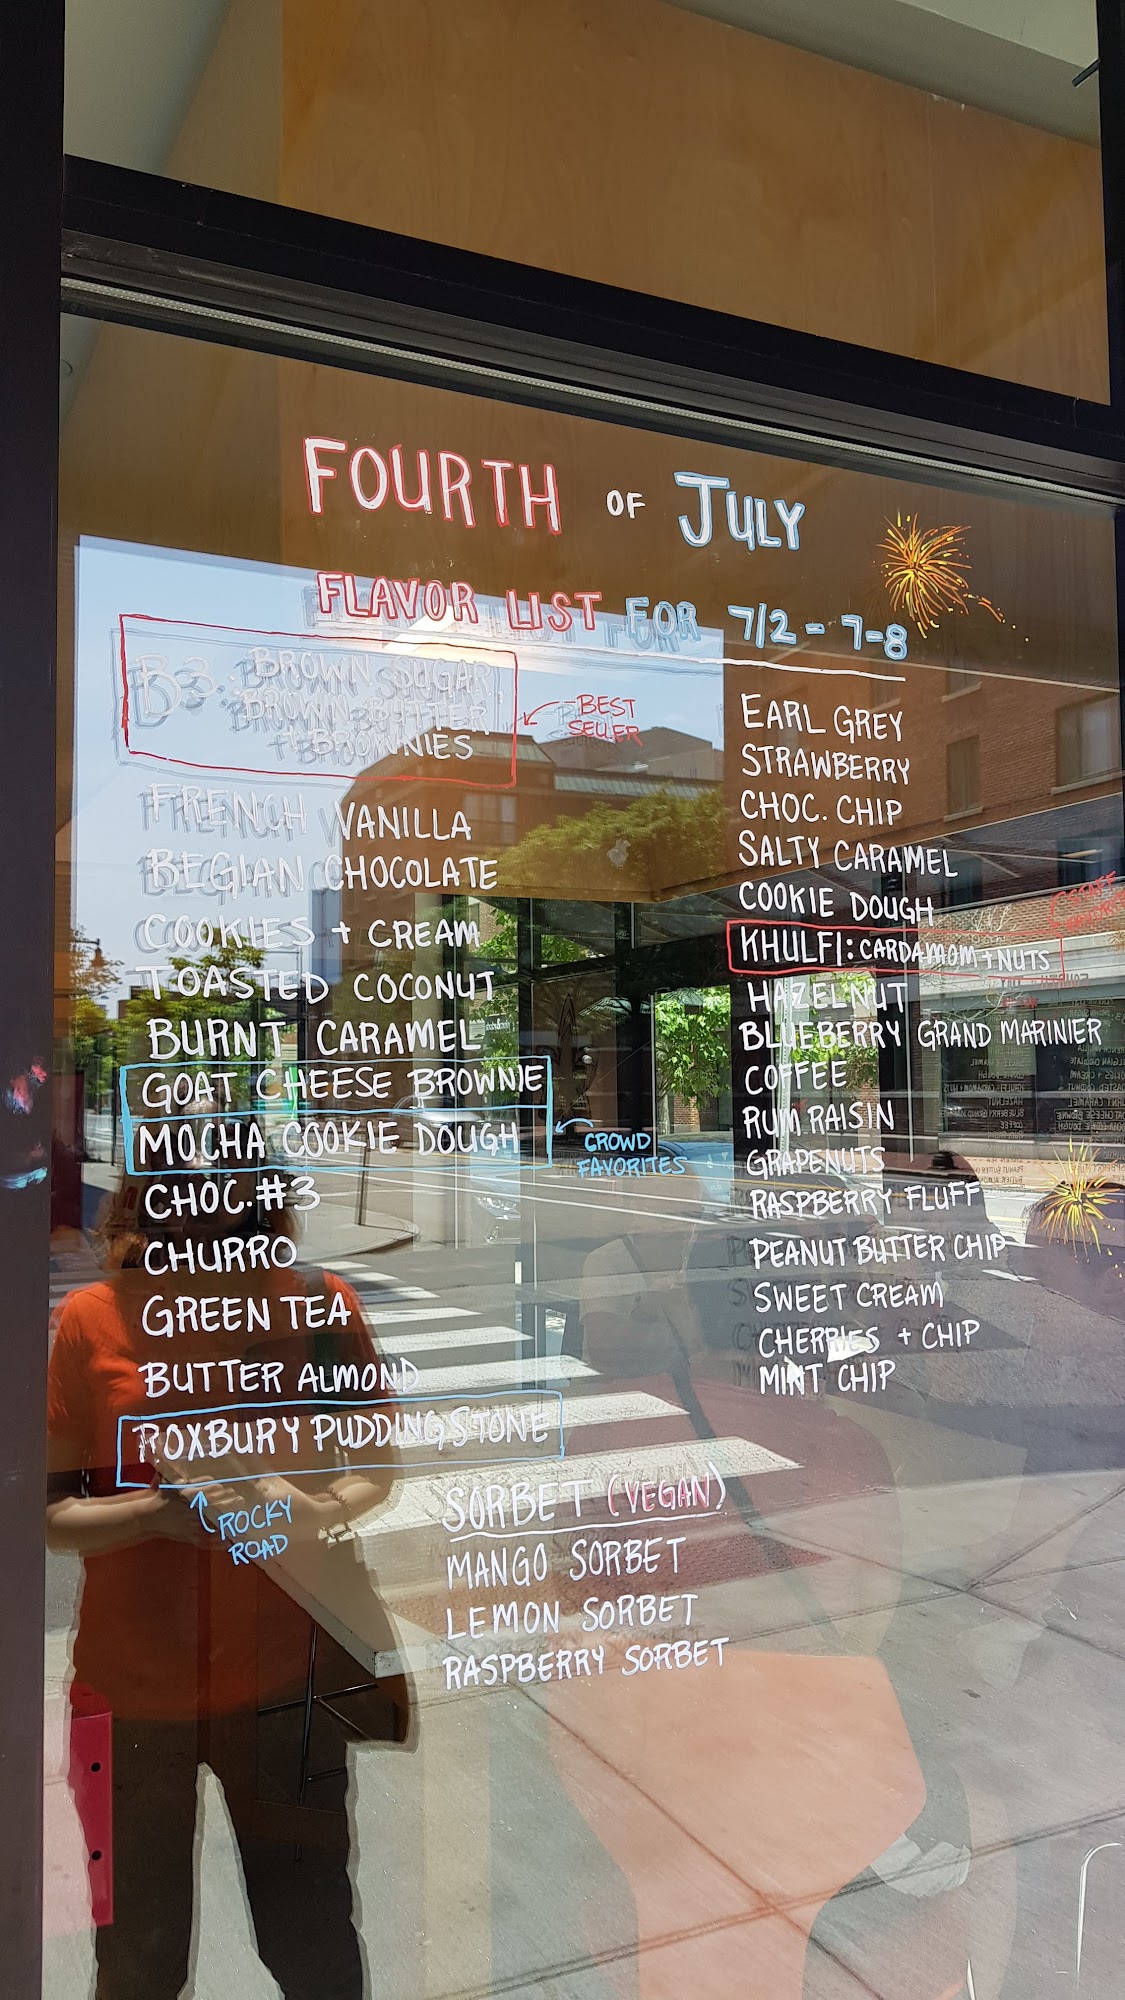 FOURTH OF JULY
FLAVOR LIST FOR 7/2 - 7-8
B3: BROWN SUGAR
BROWN BUTTER
+ BROWNIES
BEST
SELLER
FRENCH VANILLA
BEGIAN CHOCOLATE
COOKIES + CREAM
TOASTED COCONUT
BURNT CARAMEL
GOAT CHEESE BROWNIE
MOCHA COOKIE DOUGH
CROWD
FAVORITES
CHOC. #3
CHURRO
GREEN TEA
BUTTER ALMOND
ROXBURY PUDDINGSTONE
ROCKY
ROAD
EARL GREY
STRAWBERRY
CHOC. CHIP
SALTY CARAMEL
COOKIE DOUGH
KHULFI: CARDAMOM + NUTS
STAFF
HAZELNUT
BLUEBERRY GRAND MARINIER
COFFEE
RUM RAISIN
GRAPENUTS
RASPBERRY FLUFF
PEANUT BUTTER CHIP
SWEET CREAM
CHERRIES + CHIP
MINT CHIP
SORBET (VEGAN)
MANGO SORBET
LEMON SORBET
RASPBERRY SORBET